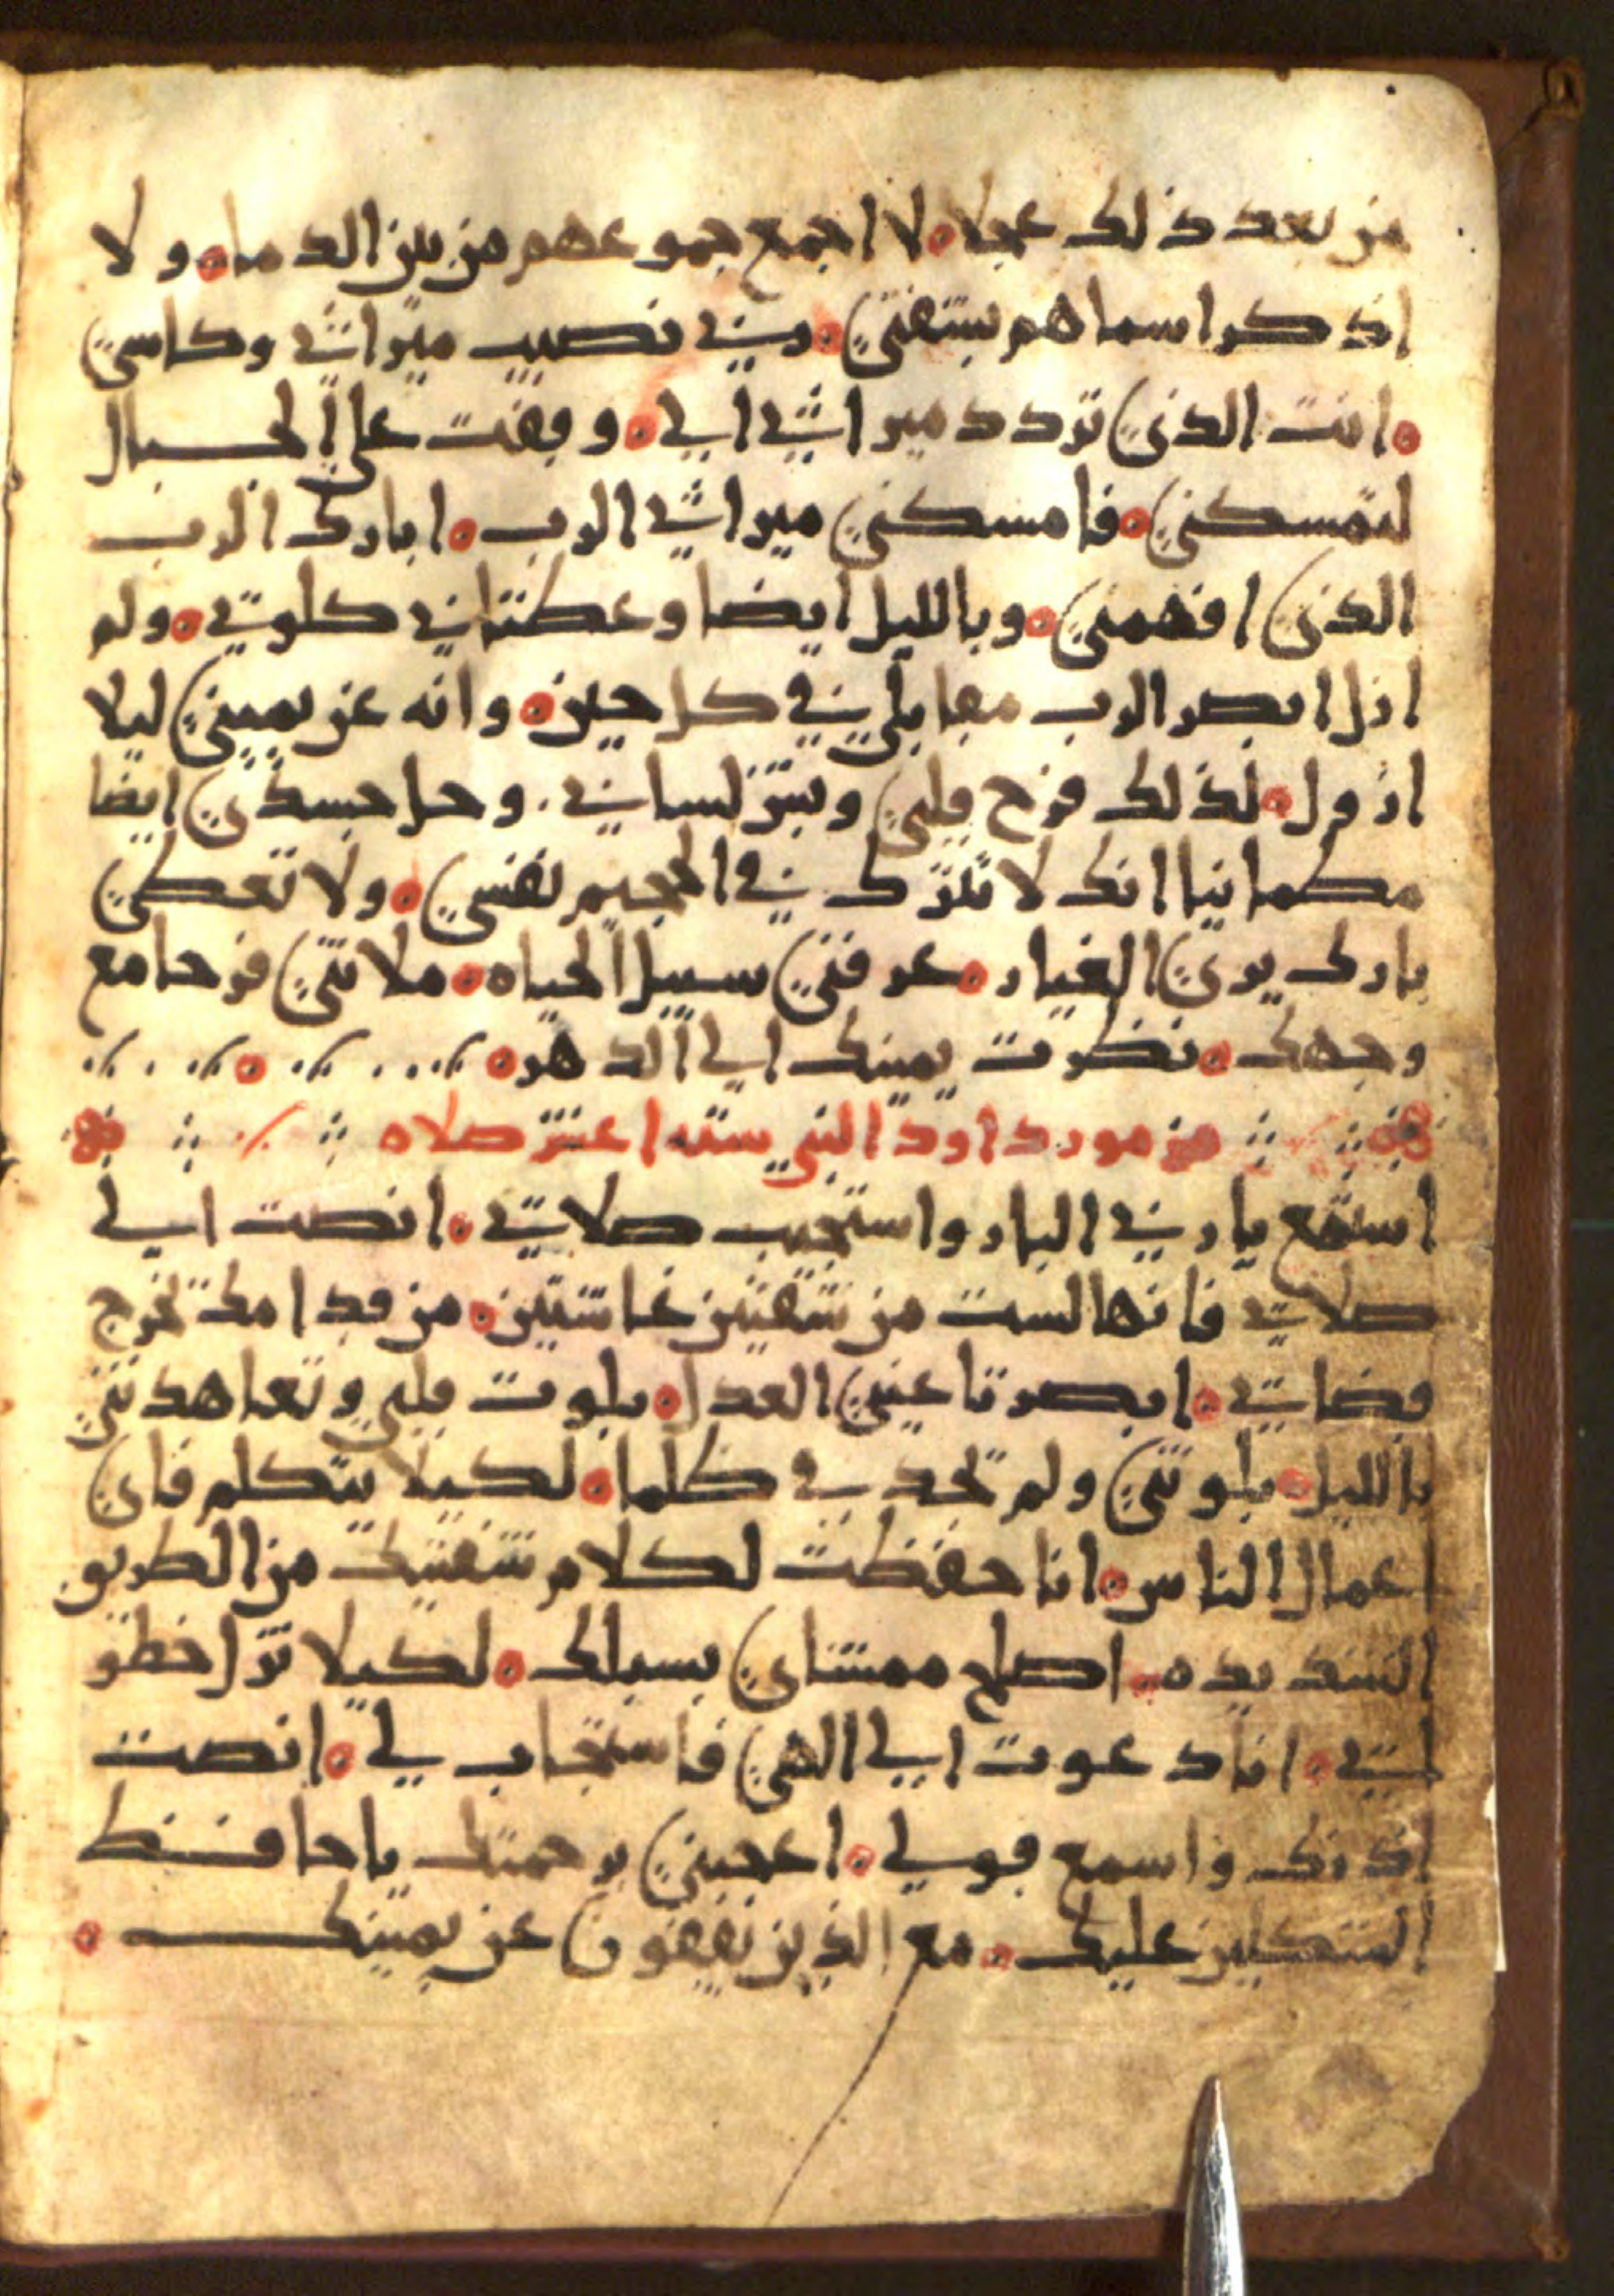 من بعد ذلك عجلا لا اجمع جموعهم من بين الدما ولا
اذكر اسماهم بشفتي ربي نصيب ميراثي وكاسي
انت الذي ترد د ميراثي الي وقعت علي الحبال
لتمسكني فامسكني ميراثي الرب ابارك الرب
الذي افهمني وبالليل ايضا وعظتاني كلوتي ولم
ازل ابصر الرب مقابلي في كل حين وانه عن يميني ليلا
ازول لذلك فرح قلبي وبتر لساني وحل جسدي ايضا
مطمانيا انك لا تترك في الجحيم نفسي ولا تعطي
بارك يري الغيار عرفني سبيل الحياه ملاتني فرحا مع
وجهك نظرت يمينك الي الدهر
مزمور داود النبي سته اعشر صلاه
استمع يا رب البار واستجيب صلاتي انصت الي
صلاتي فانها لست من شفتين غاشتين من قدامك تخرج
قضاتي ابصرتا عيني العدل بلوت قلبي وتعاهدتني
بالليل بلوتني ولم تجد في ظلما لكيلا يتكلم فاي
اعمال الناس انا حفظت لكلام شفتيك من الطريق
الشديده اصلح ممشاي بسبلك لكيلا تزل خطو
لتي انا دعوت الي الهي فاستجاب لي انصت
اذنك واسمع قولي اعجبني برحمتك يا حافظ
المتكلين عليك مع الذين يقفون عن يمينك